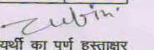 Zubin
यर्थी का पूर्ण हस्ताक्षर